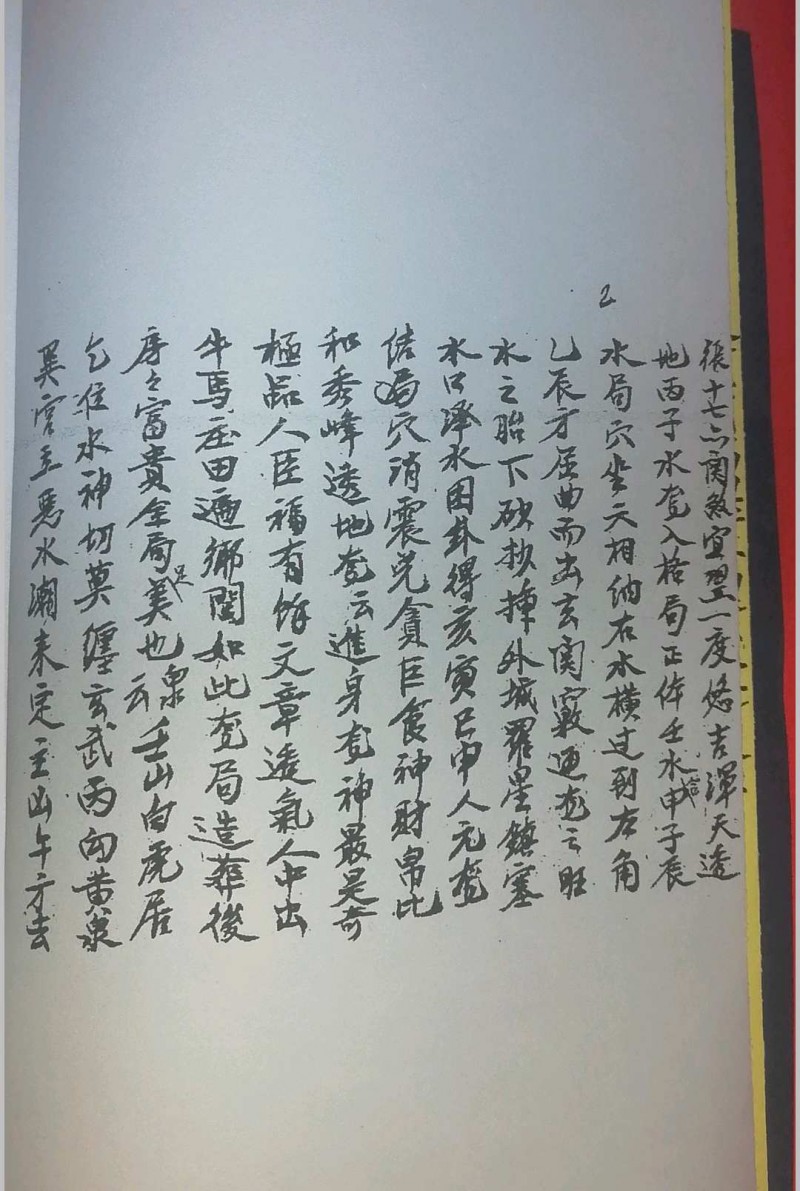 2
張十七六関煞宜翌一度悠吉渾天透
地丙子水克入格局正体壬水坐申子辰
水局穴坐天相納右水橫过到左角
乙辰方屈曲而出玄関竅通克云旺
水之胎下砂抄揀外城羅星鎮塞
水口淨水因卦得亥寅巳申人元
结局穴消震兌貪巨食神財帛比
和秀峰透地克云進身克神最是奇
極品人臣福有餘文章透氣人中出
牛馬庄田遍鄉閭如此克局造葬後
房々富貴全局美足也泉云壬山白虎居
乞在水神切莫纏玄武丙向黃泉
巽宮主惡水潮来定主山午方去